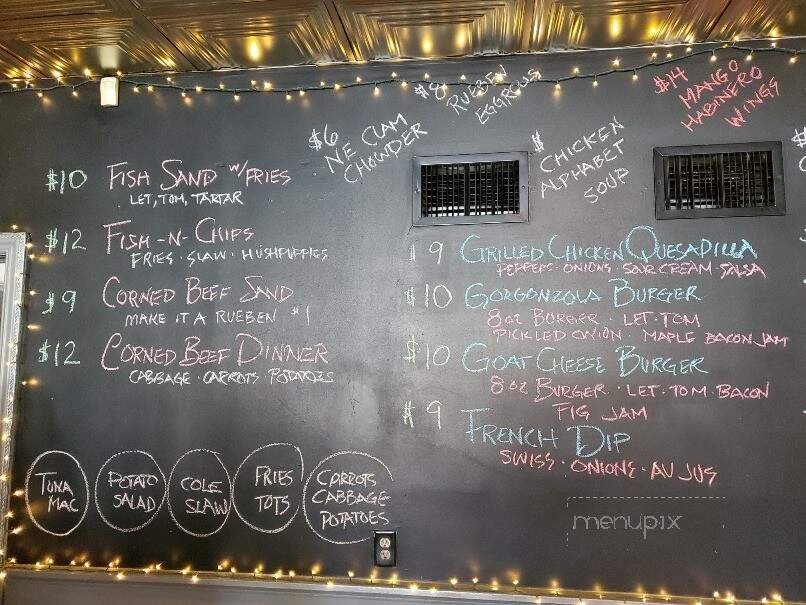 $6 NE CLAM
CHOWDER
$8 RUEBEN
EGGROLLS
$ CHICKEN
ALPHABET
SOUP
$14 MANGO
HABINERO
WINGS
$10 FISH SAND W/FRIES
LET, TOM, TARTAR
$12 FISH-N-CHIPS
FRIES · SLAW · HUSHPUPPIES
$9 CORNED BEEF SAND
MAKE IT A RUEBEN $1
$12 CORNED BEEF DINNER
CABBAGE · CARROTS · POTATOES
$9 GRILLED CHICKEN QUESADILLA
PEPPERS · ONIONS · SOUR CREAM · SALSA
$10 GORGONZOLA BURGER
8OZ BURGER · LET · TOM
PICKLED ONION · MAPLE BACON JAM
$10 GOAT CHEESE BURGER
8OZ BURGER · LET · TOM · BACON
FIG JAM
$9 FRENCH DIP
SWISS · ONIONS · AU JUS
TUNA
MAC
POTATO
SALAD
COLE
SLAW
FRIES
TOTS
CARROTS
CABBAGE
POTATOES
menupix